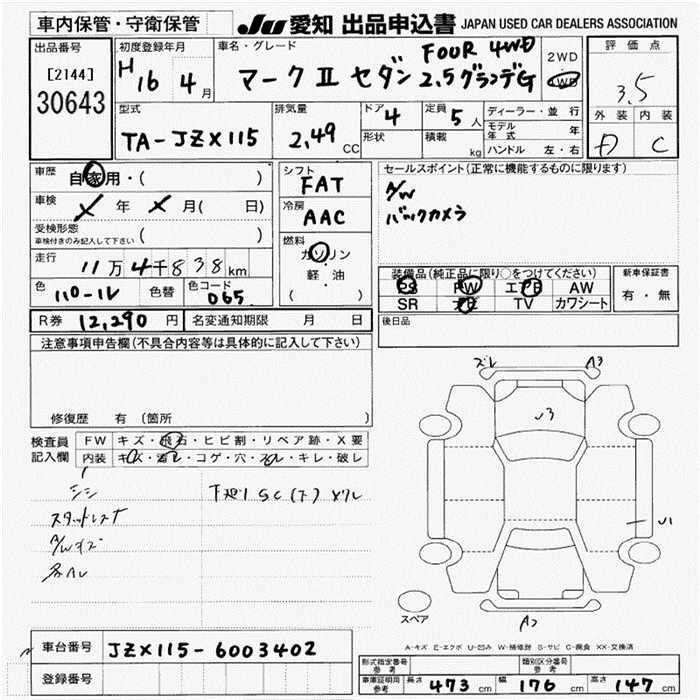 車内保管・守衛保管
JU 愛知 出品申込書 JAPAN USED CAR DEALERS ASSOCIATION
出品番号
[2144]
30643
初度登録年月
H 16 4 月
車名・グレード
マークⅡ セダン FOUR 4WD
2.5グランデG
2WD
4WD
評価点
3.5
外装 内装
D C
型式
TA-JZX115
排気量
2.49 CC
ドア 4
形状
定員 5 人
積載 kg
ディーラー・並行
モデル年式 年
ハンドル 左・右
車歴
自家用・( )
車検
X 年 X 月( 日)
受検形態
車検付きのみ記入して下さい ( )
走行
11万4千838km
色 色替 色コード
065
シフト
FAT
冷房
AAC
燃料
ガソリン
軽・油
( )
セールスポイント(正常に機能するものに限ります)
A/W
バックカメラ
装備品(純正品に限り○をつけてください)
PS PW エアB AW
SR ナビ TV カワシート
新車保証書
有・無
R券 12,290 円 名変通知期限 月 日
後日品
注意事項申告欄(不具合内容等は具体的に記入して下さい)
修復歴 有 (箇所 )
検査員
記入欄
FW キズ・飛石・ヒビ割・リペア跡・X要
内装 キズ・汚レ・コゲ・穴・スレ・キレ・破レ
スタッドレス
A/Wキズ
ズレ A3
U3
U1
A2
スペア
A-キズ E-エクボ U-凹み W-補修跡 S-サビ C-腐食 XX-交換済
車台番号 JZX115-6003402
登録番号
形式指定番号
参考
類別区分番号
参考
車庫証明用
参考
長さ 473 cm 幅 176 cm 高さ 147 cm